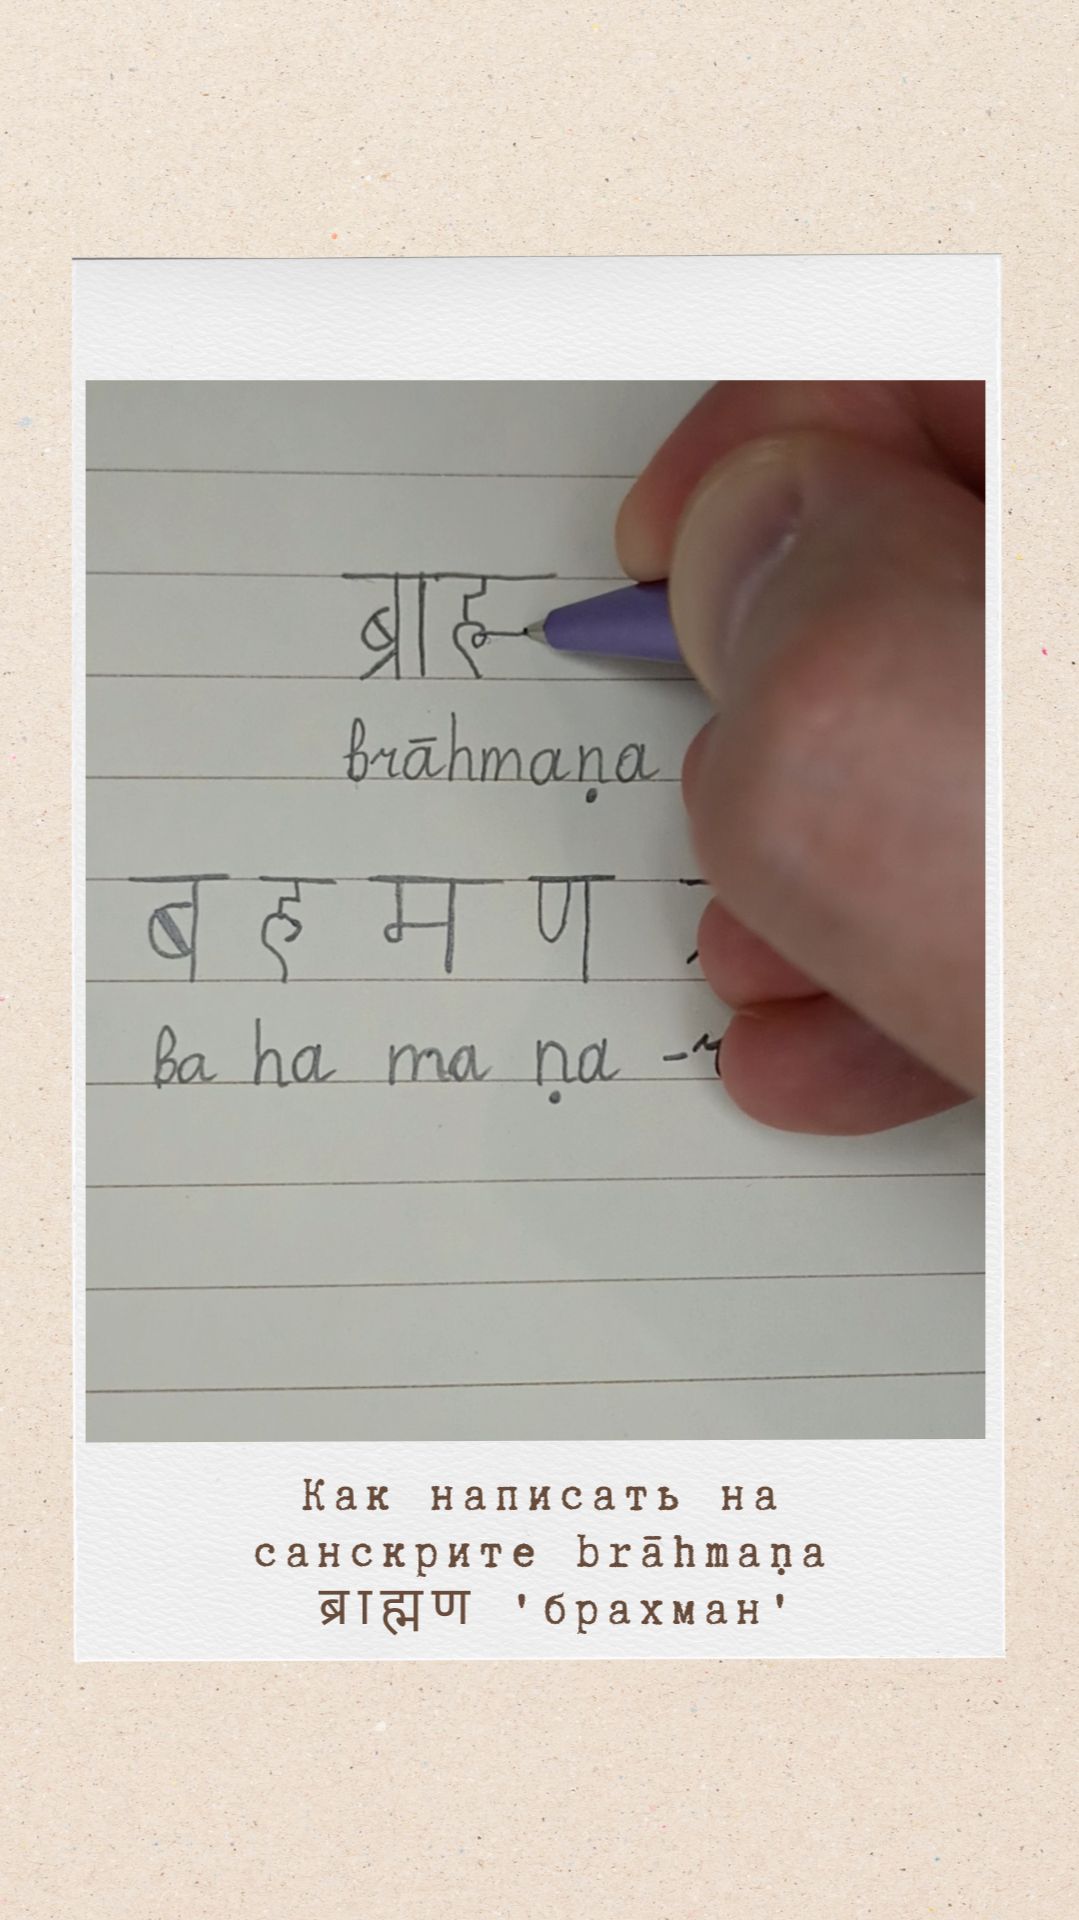 ब्राह
brāhmaṇa
ब ह म ण
ba ha ma ṇa
Как написать на
санскрите brāhmaṇa
ब्राह्मण 'брахман'